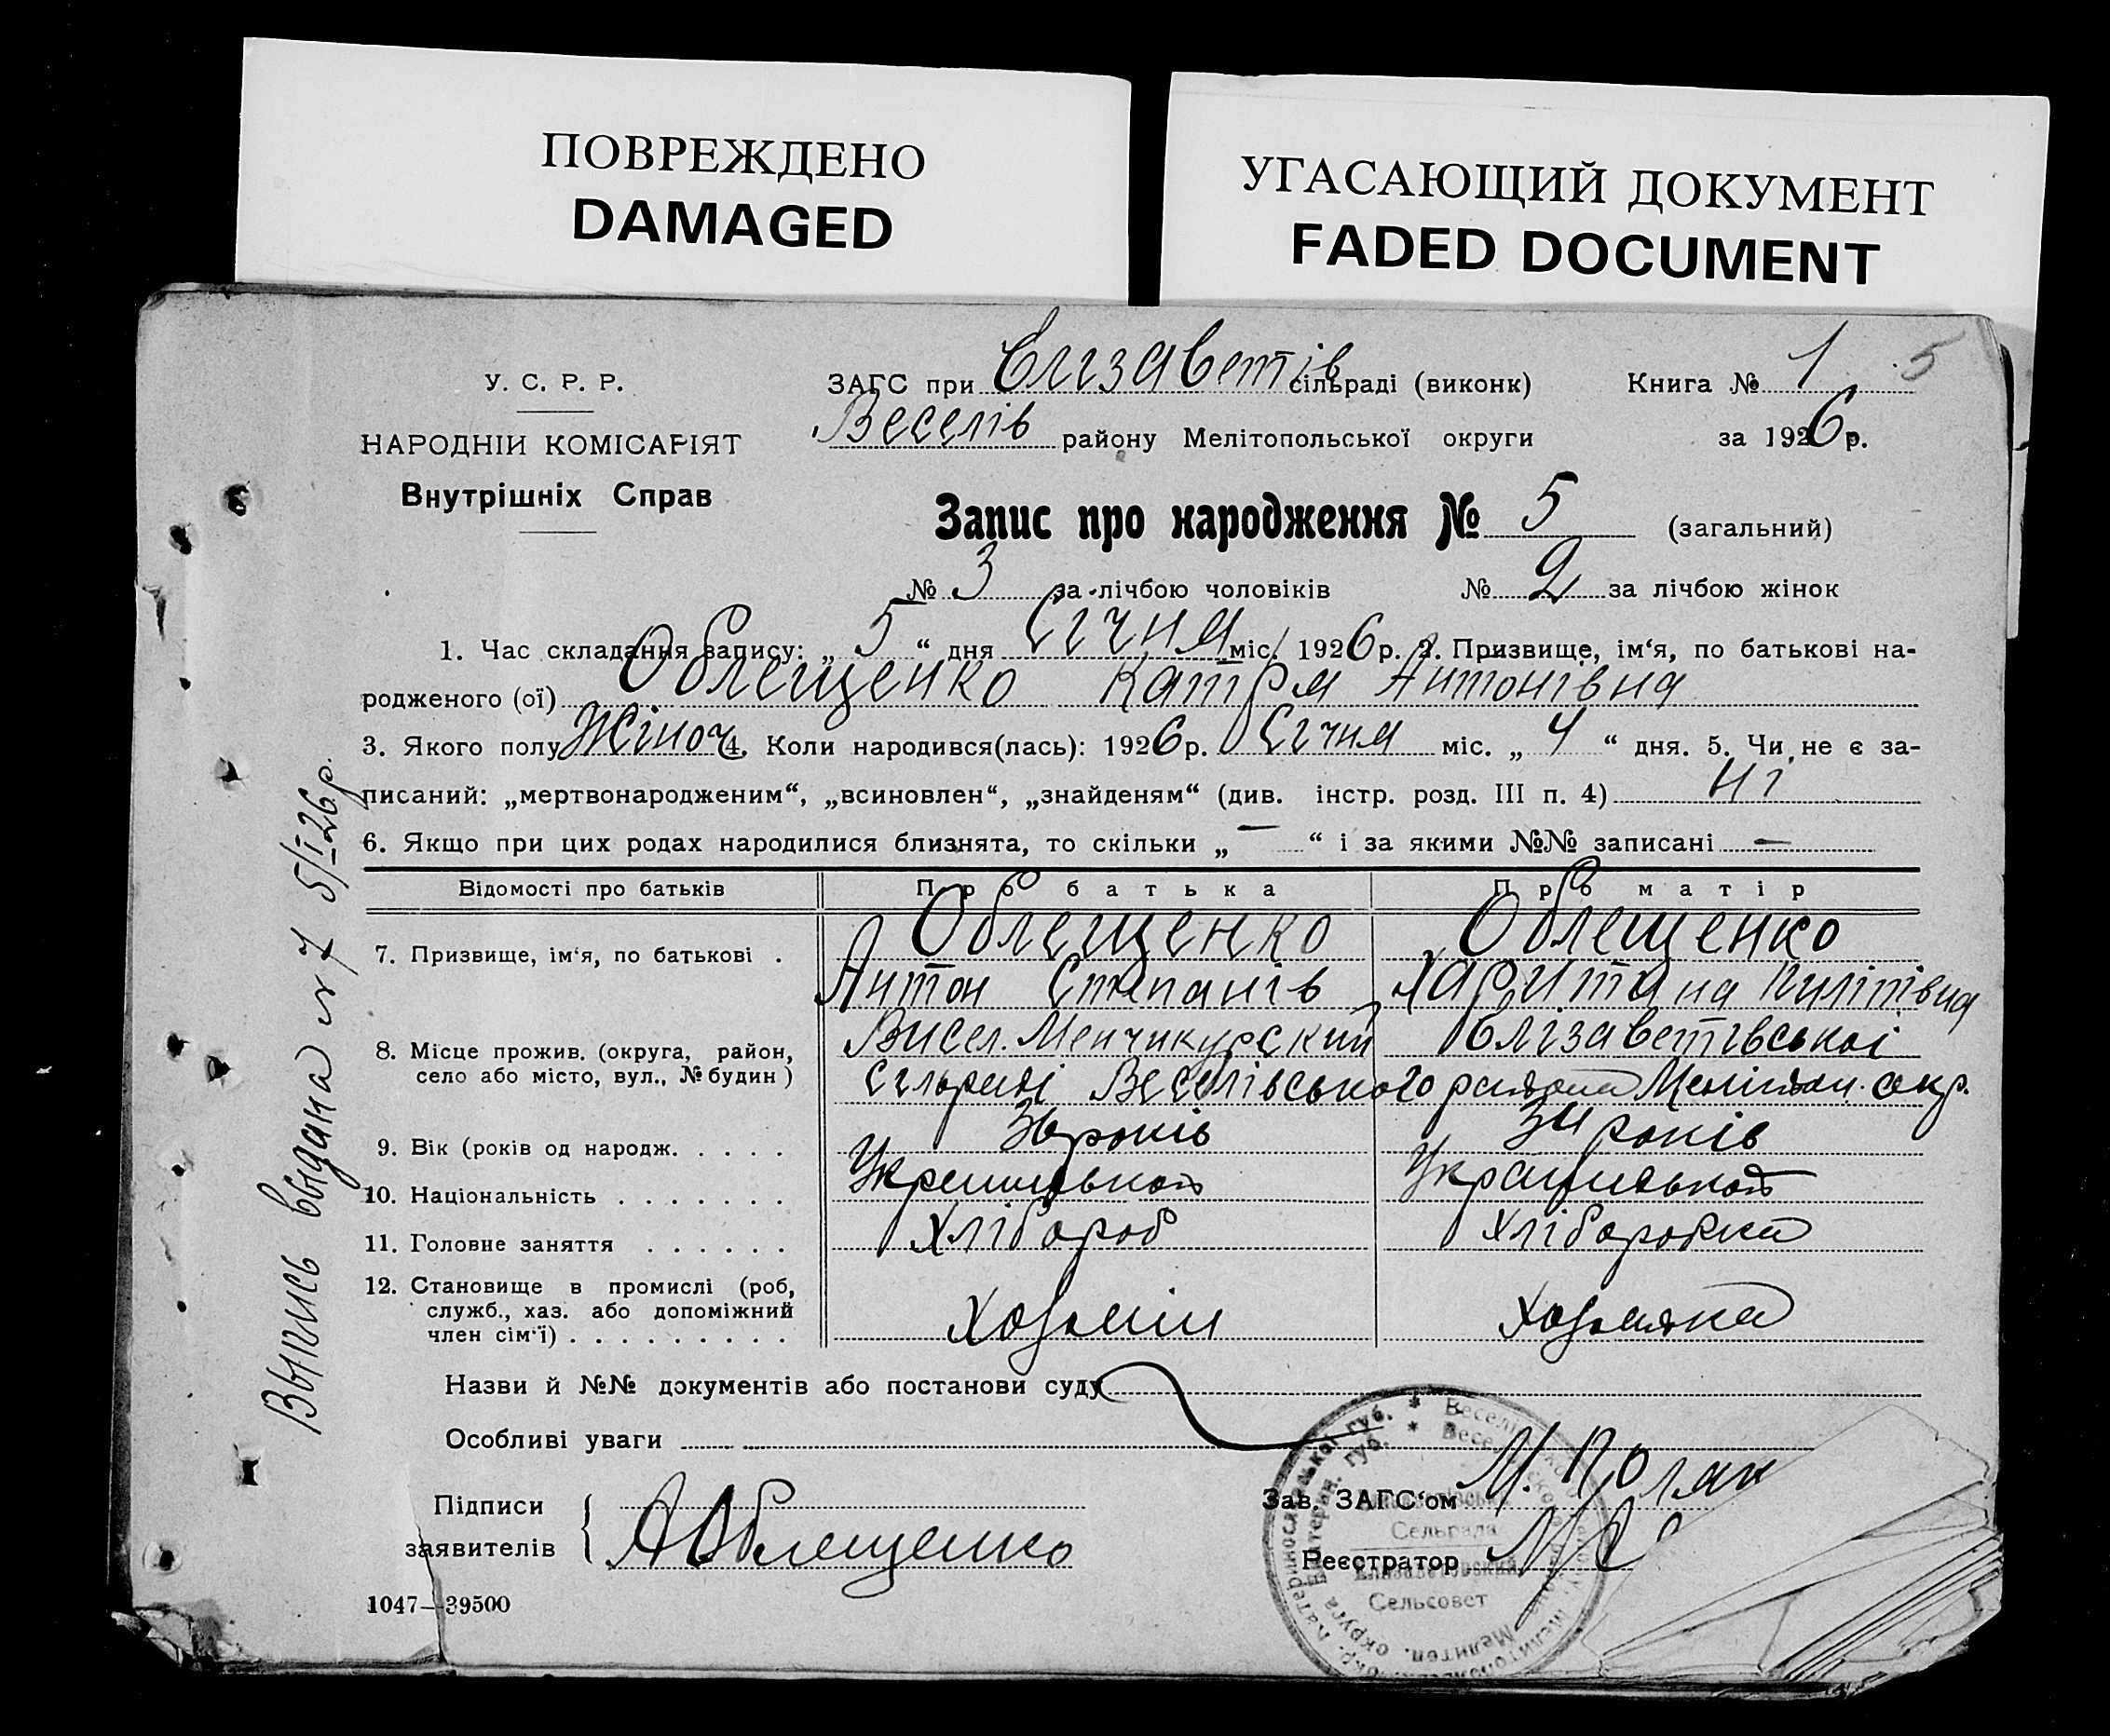 ПОВРЕЖДЕНО
DAMAGED
УГАСАЮЩИЙ ДОКУМЕНТ
FADED DOCUMENT
У. С. Р. Р.
НАРОДНІЙ КОМІСАРІЯТ
Внутрішніх Справ
ЗАГС при Єлізаветів сільраді (виконк)
Книга № 1 5
Веселів району Мелітопольської округи
за 1926 р.
Запис про народження № 5 (загальний)
№ 3 за лічбою чоловіків № 2 за лічбою жінок
1. Час складання запису: „ 5 “ дня Січня міс. 1926 р. 2. Призвище, ім‘я, по батькові на-
родженого (ої) Облещенко Катря Антонівна
3. Якого полу Жіноч 4. Коли народився(лась): 1926 р. Січня міс. „ 4 “ дня. 5. Чи не є за-
писаний: „мертвонародженим“, „всиновлен“, „знайденям“ (див. інстр. розд. III п. 4) ні
6. Якщо при цих родах народилися близнята, то скільки „ — “ і за якими №№ записані —
Відомості про батьків Про батька Про матір
7. Призвище, ім‘я, по батькові .
Облещенко Облещенко
Антон Степанів Харитина Пиліпівна
8. Місце прожив. (округа, район,
село або місто, вул., № будин)
Висел. Менчикурский Єлізаветівської
Сільраді Веселівського района Меліт. окр.
9. Вік (років од народж. . . . .
36 років 34 років
10. Національність . . . . . . .
Української Української
11. Головне заняття . . . . . .
Хлібороб Хліборобка
12. Становище в промислі (роб,
служб., хаз. або допоміжний
член сім‘ї) . . . . . . . . .
Хозяїн Хозяйка
Назви й №№ документів або постанови суду
Особливі уваги
Підписи
заявителів
АОблещенко
Зав. ЗАГС‘ом М. Поляк
Реєстратор
Сельрада
Елизаветовский
Сельсовет
1047—39500
Выпись выдана № 7 5/I 26 р.